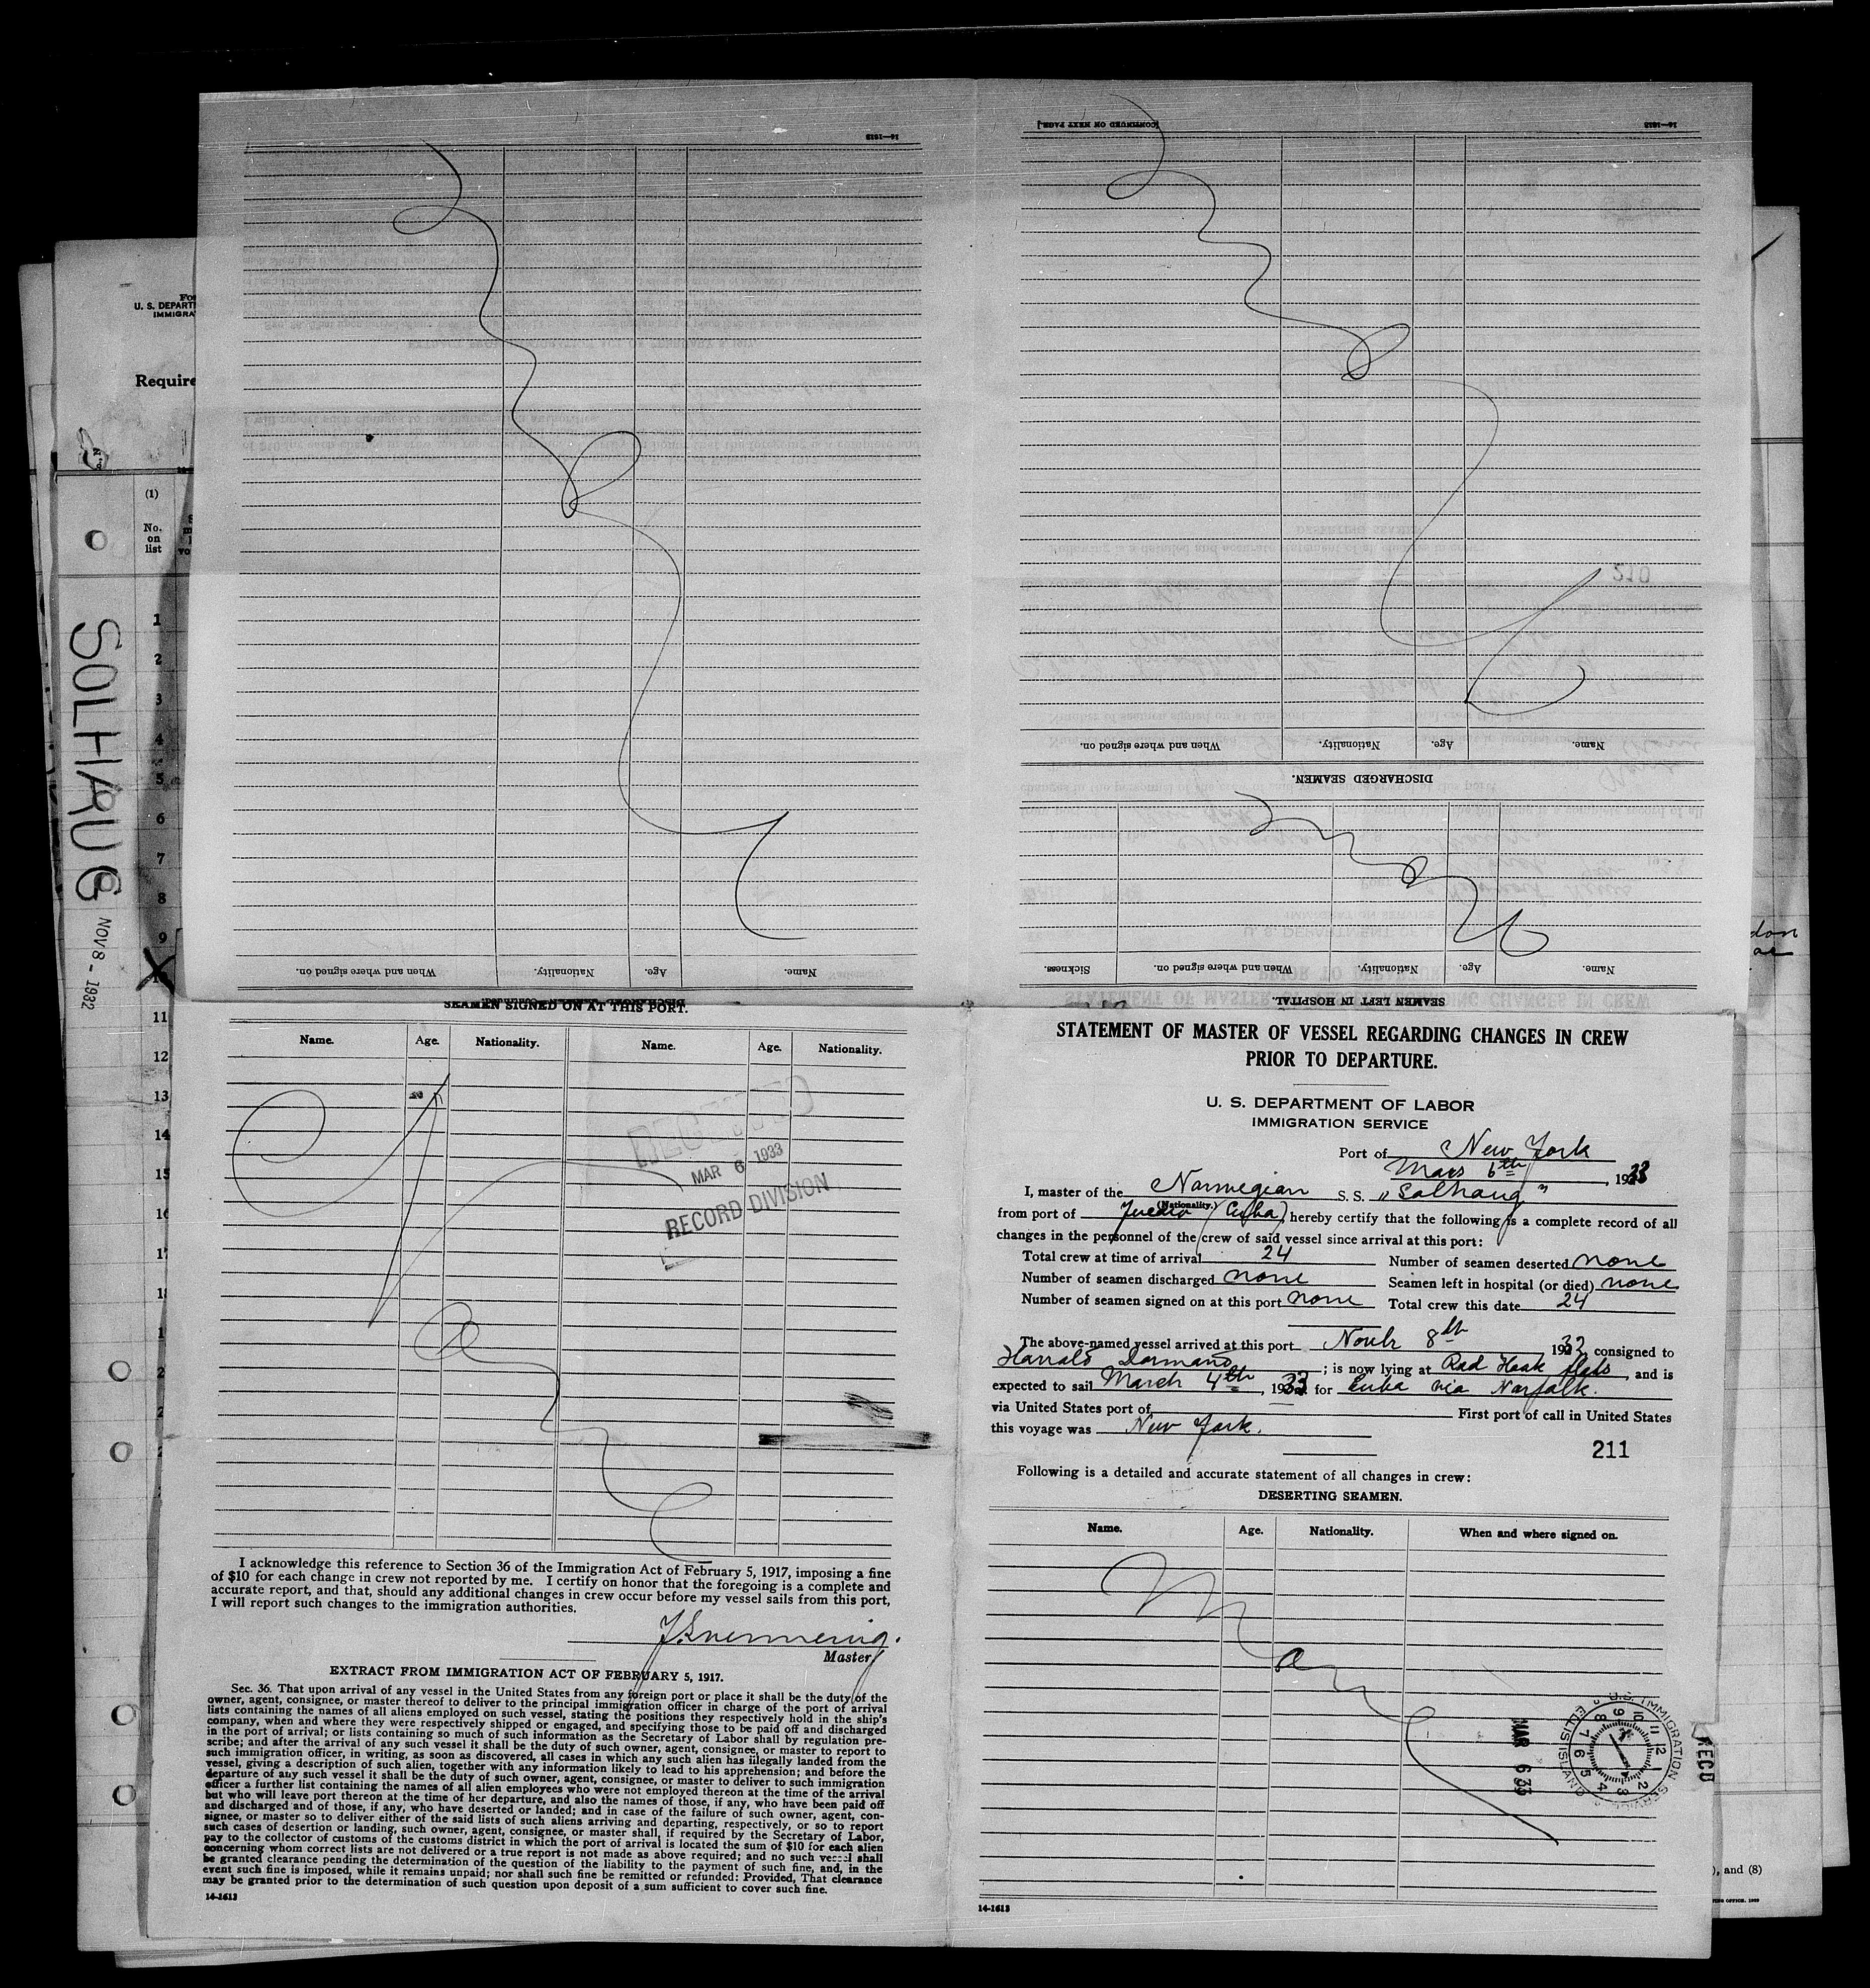 For
U. S. DEPART
IMMIGRA
Require
(1)
No.
on
list
1
2
3
4
5
6
7
8
9
11
12
13
14
15
16
SOLHAUG
NOV 8 - 1932
14—1613
When and where signed on.
Nationality.
Age.
Name.
[CONTINUED ON NEXT PAGE.]
14—1613
When and where signed on.
Nationality.
Age.
Name.
DISCHARGED SEAMEN.
Sickness.
When and where signed on.
Nationality.
Age.
Name.
SEAMEN LEFT IN HOSPITAL.
SEAMEN SIGNED ON AT THIS PORT.
Name. Age. Nationality. Name. Age. Nationality.
RECEIVED
MAR 6 1933
RECORD DIVISION
None
I acknowledge this reference to Section 36 of the Immigration Act of February 5, 1917, imposing a fine
of $10 for each change in crew not reported by me. I certify on honor that the foregoing is a complete and
accurate report, and that, should any additional changes in crew occur before my vessel sails from this port,
I will report such changes to the immigration authorities.
Master
EXTRACT FROM IMMIGRATION ACT OF FEBRUARY 5, 1917.
Sec. 36. That upon arrival of any vessel in the United States from any foreign port or place it shall be the duty of the
owner, agent, consignee, or master thereof to deliver to the principal immigration officer in charge of the port of arrival
lists containing the names of all aliens employed on such vessel, stating the positions they respectively hold in the ship's
company, when and where they were respectively shipped or engaged, and specifying those to be paid off and discharged
in the port of arrival; or lists containing so much of such information as the Secretary of Labor shall by regulation pre-
scribe; and after the arrival of any such vessel it shall be the duty of such owner, agent, consignee, or master to report to
such immigration officer, in writing, as soon as discovered, all cases in which any such alien has illegally landed from the
vessel, giving a description of such alien, together with any information likely to lead to his apprehension; and before the
departure of any such vessel it shall be the duty of such owner, agent, consignee, or master to deliver to such immigration
officer a further list containing the names of all alien employees who were not employed thereon at the time of the arrival
but who will leave port thereon at the time of her departure, and also the names of those, if any, who have been paid off
and discharged and of those, if any, who have deserted or landed; and in case of the failure of such owner, agent, con-
signee, or master so to deliver either of the said lists of such aliens arriving and departing, respectively, or so to report
such cases of desertion or landing, such owner, agent, consignee, or master shall, if required by the Secretary of Labor,
pay to the collector of customs of the customs district in which the port of arrival is located the sum of $10 for each alien
concerning whom correct lists are not delivered or a true report is not made as above required; and no such vessel shall
be granted clearance pending the determination of the question of the liability to the payment of such fine, and, in the
event such fine is imposed, while it remains unpaid; nor shall such fine be remitted or refunded: Provided, That clearance
may be granted prior to the determination of such question upon deposit of a sum sufficient to cover such fine.
14-1613
STATEMENT OF MASTER OF VESSEL REGARDING CHANGES IN CREW
PRIOR TO DEPARTURE.
U. S. DEPARTMENT OF LABOR
IMMIGRATION SERVICE
Port of New York
Mars 6th, 1933
I, master of the Norwegian S. S. "Solhaug"
(Nationality.)
from port of (Cuba) hereby certify that the following is a complete record of all
changes in the personnel of the crew of said vessel since arrival at this port:
Total crew at time of arrival 24 Number of seamen deserted none
Number of seamen discharged none Seamen left in hospital (or died) none
Number of seamen signed on at this port none Total crew this date 24
The above-named vessel arrived at this port Novbr 8th 1932, consigned to
Harrald Dormand; is now lying at Rad Hook flats, and is
expected to sail March 4th, 1933 for Cuba via Norfolk.
via United States port of First port of call in United States
this voyage was New York.
211
Following is a detailed and accurate statement of all changes in crew:
DESERTING SEAMEN.
Name. Age. Nationality. When and where signed on.
None
MAR 6 33
U.S. IMMIGRATION SERVICE
ELLIS ISLAND
REC'D
14-1613
), and (8)